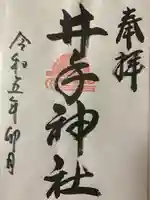 奉拝
井手神社
令和五年卯月